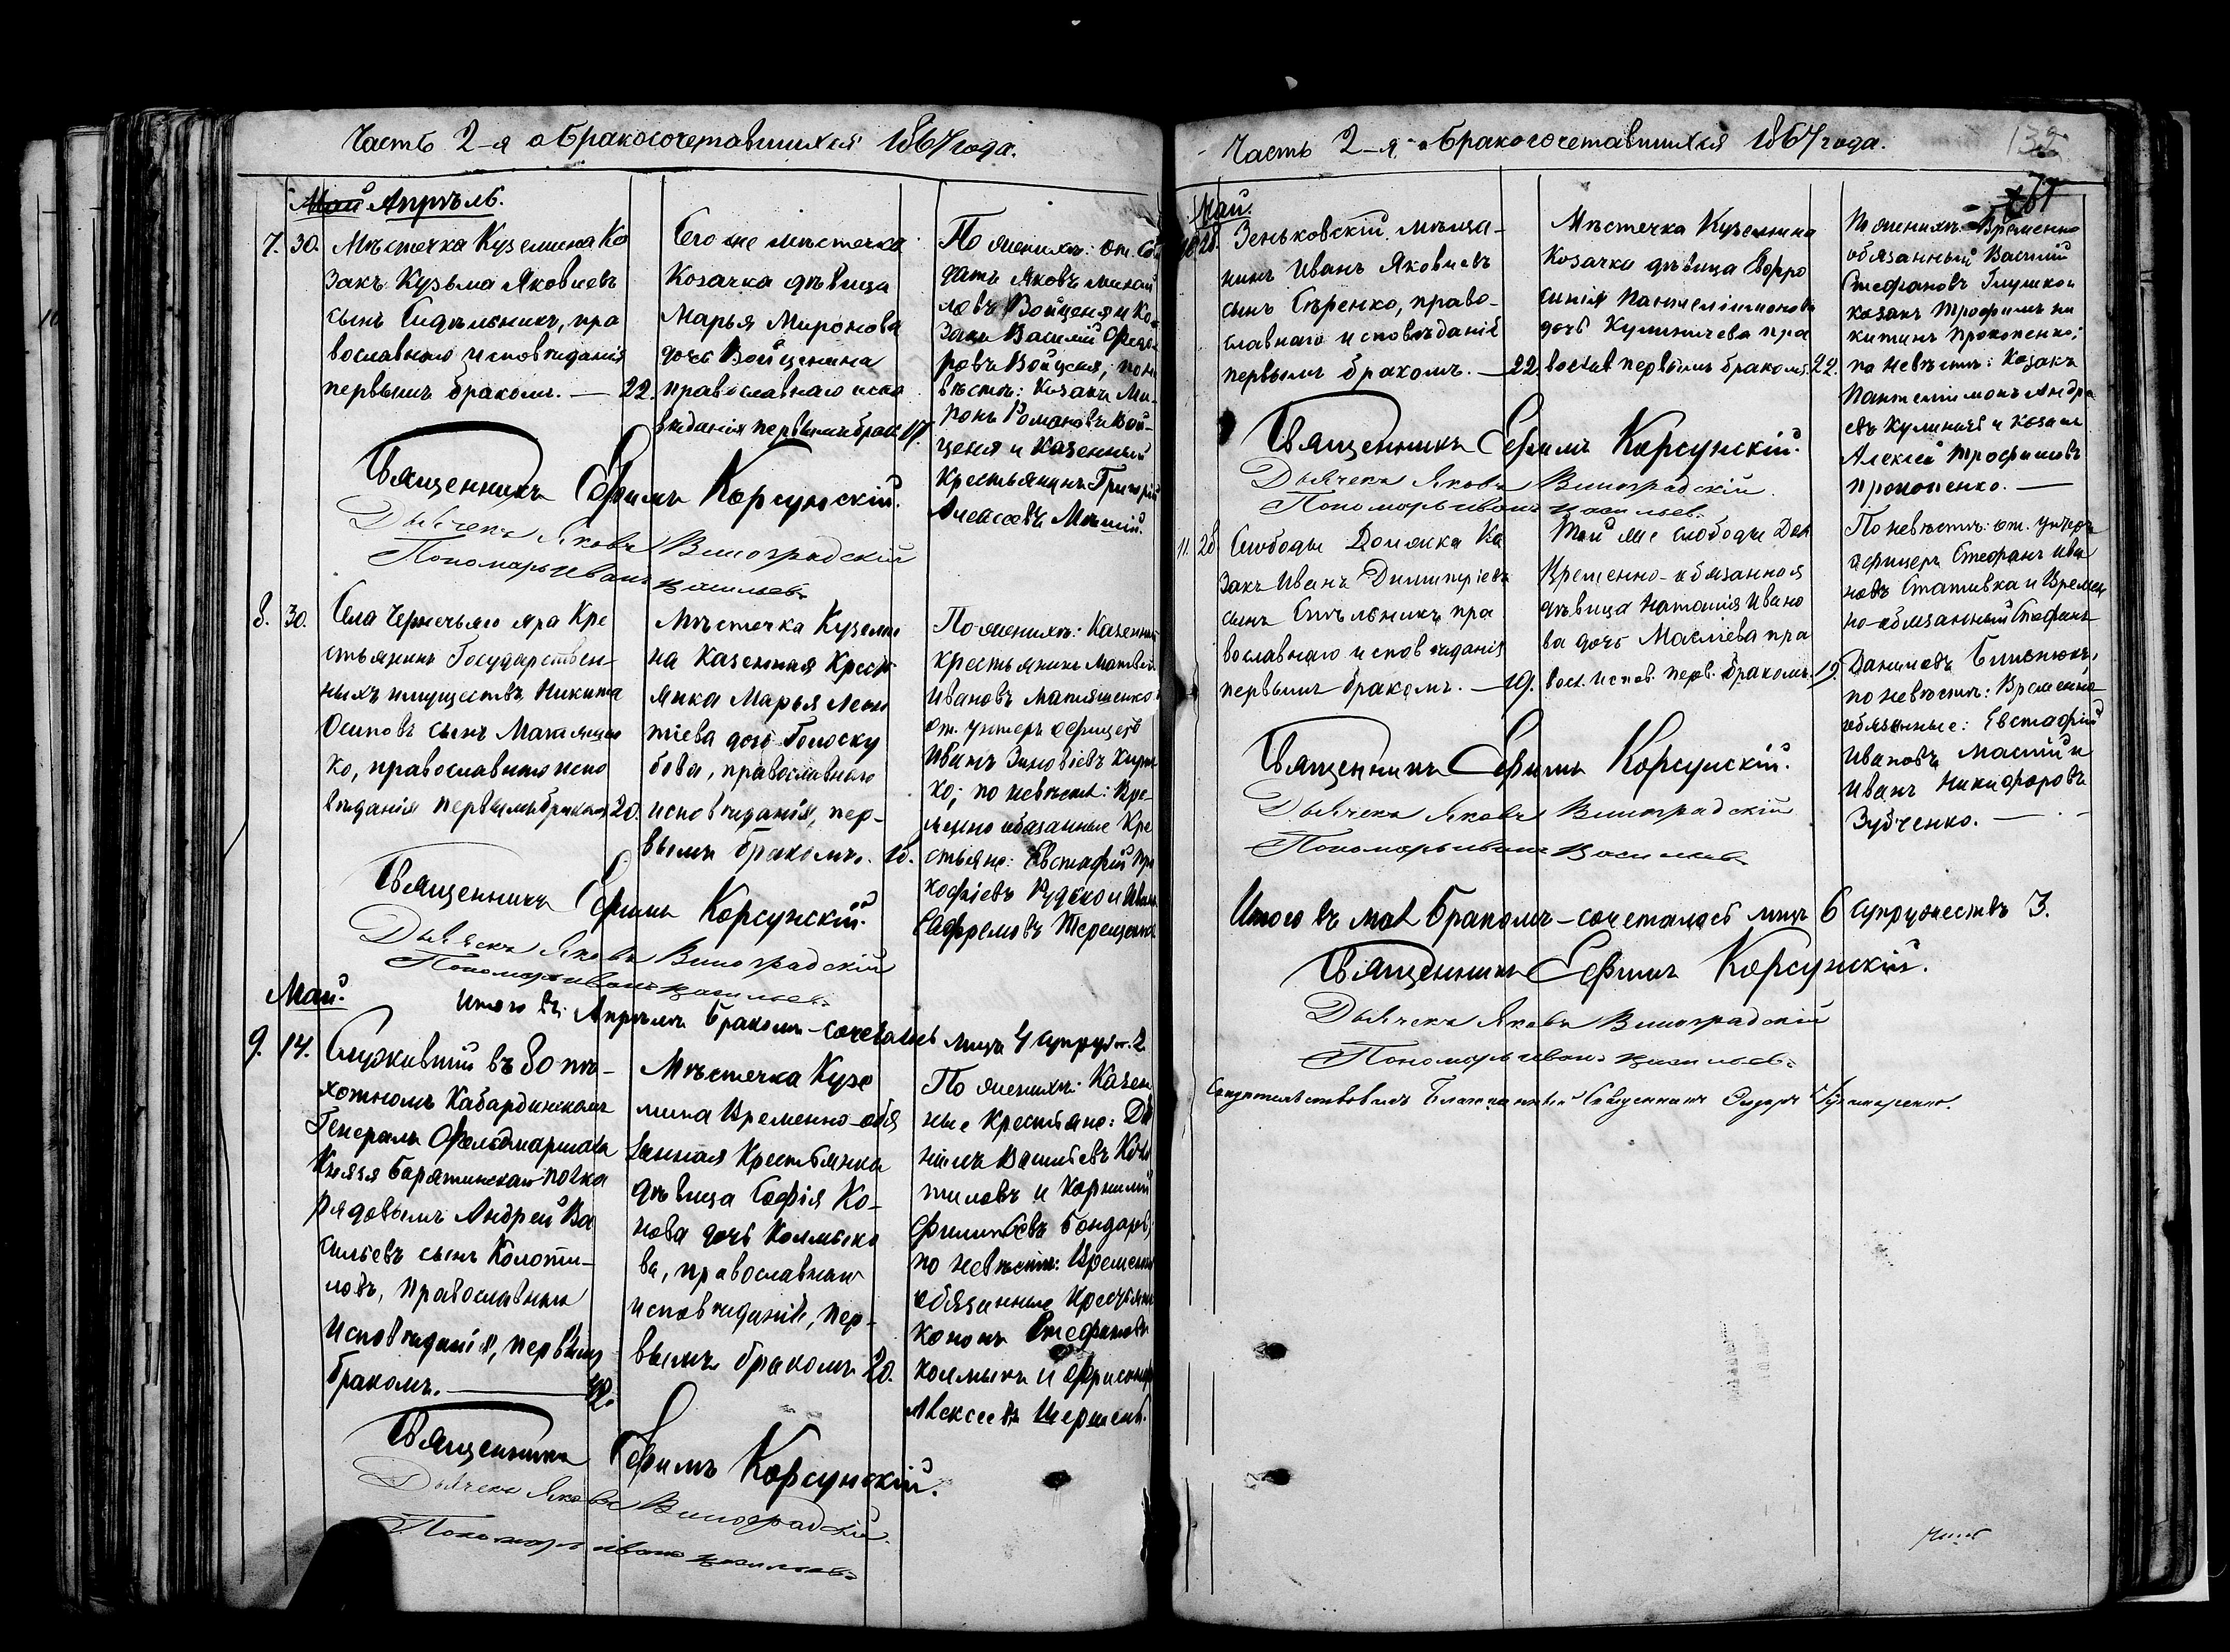 Часть 2-я о бракосочетавшихся 1867 года.
Апрѣль.
7. 30. Мѣстечка Куземина Ко
закъ Кузьма Яковлевъ
сынъ Сидѣльникъ, пра
вославнаго исповѣданія
первымъ бракомъ. — 22.
Сего же мѣстечка
Козачка дѣвица
Марья Миронова
дочь Войценина
православнаго испо
вѣданія первымъ брак 17.
По женихѣ: от. Сол
датъ Яковъ
ловъ Войценя и Ко
закъ Василій Федо
ровъ Войценя, по не
вѣстѣ: Козакъ Ми
ронъ Романовъ Вой-
ценя и Казенный
Крестьянинъ Григорій
Алексѣевъ
Священникъ Ефимъ Корсунскій.
Дьячекъ Яковъ Виноградскій
Пономарь Иванъ Васильевъ
8. 30. Села Чернечьяго Яра Кре
стьянинъ Государствен-
ныхъ имуществъ Никита
Осиповъ сынъ Матяшен
ко, православнаго испо
вѣданія первымъ бракомъ 20.
Мѣстечка Куземи
на Казенная Кресть
янка Марья Леон
тіева дочь Голоску
бова, православнаго
исповѣданія, пер-
вымъ бракомъ. 18.
По женихѣ: Казенный
крестьянинъ Матвей
Ивановъ Матяшенко
от. унтеръ офицеръ
Иванъ Зиновіевъ
ко; по невѣстѣ: Вре-
менно обязанные Кре
стьяне: Евстафій Про
кофіевъ Рудько и Иванъ
Ефремовъ Терещенко
Священникъ Ефимъ Корсунскій.
Дьячекъ Яковъ Виноградскій
Пономарь Иванъ Васильевъ
Итого въ Апрѣлѣ бракомъ-сочеталось лицъ 4 супруж. 2.
Май.
9. 14. Служившій въ 80 пѣ-
хотномъ Кабардинскомъ
Генералъ Фельдмаршала
Князя Барятинскаго полка
рядовымъ Андрей Ва
сильевъ сынъ Колоти-
ловъ, православнаго
исповѣданія, первымъ
бракомъ. —
Мѣстечка Кузе
мина Временно-обя
занная Крестьянка
дѣвица Софія Ко-
нова дочь Колмыко
ва, православнаго
исповѣданія, пер-
вымъ бракомъ 20.
По женихѣ: Казен
ные Крестьяне: Да
ніилъ Васильевъ Коло
тиловъ и Корнилій
Филиповъ Бондаръ,
по невѣстѣ: Временно
обязанные Крестьяне
Кононъ Стефановъ
Колмыкъ и
Алексеевъ
Священникъ Ефимъ Корсунскій.
Дьячекъ Яковъ Виноградскій
Пономарь Иванъ Васильевъ
Часть 2-я о бракосочетавшихся 1867 года.
132
Май.
10. 28. Зеньковскій мѣща-
нинъ Иванъ Яковлевъ
сынъ Сѣренко, право-
славнаго исповѣданія
первымъ бракомъ. — 22
Мѣстечка Куземина
Козачка дѣвица Евфро
синія Пантелеимонова
дочь Кулиничева пра
восл. первымъ бракомъ. 22.
По женихѣ: Временно
обязанный Василій
Стефановъ Глушко и
козакъ Трофимъ Ни
китинъ Прокопенко;
по невѣстѣ: Козакъ
Пантелімонъ Андре
евъ Кулиничъ и Козакъ
Алексѣй Трофимовъ
Прокопенко. —
Священникъ Ефимъ Корсунскій.
Дьячекъ Яковъ Виноградскій.
Пономарь Иванъ Васильевъ.
11. 28. Слободы Доманка Ка
закъ Иванъ Димитріевъ
сынъ Стѣльникъ пра
вославнаго исповѣданія
первымъ бракомъ. — 19.
Той же слободы
Временно-обязанная
дѣвица Наталія Ивано
ва дочь Маслиева пра
восл. испов. перв. бракомъ. 19.
По невѣстѣ: от. унтеръ
офицеръ Стефанъ Ива
новъ Стативка и Времен
но-обязанный Стефанъ
Даниловъ Близнюкъ,
по невѣстѣ: Временно
обязанные: Евстафій
Ивановъ Маслій и
Иванъ Никифоровъ
Зубченко. —
Священникъ Ефимъ Корсунскій.
Дьячекъ Яковъ Виноградскій
Пономарь Иванъ Васильевъ
Итого въ маѣ бракомъ-сочеталось лицъ 6 супружествъ 3.
Священникъ Ефимъ Корсунскій.
Дьячекъ Яковъ Виноградскій
Пономарь Иванъ Васильевъ
Свидѣтельствовалъ Благочинный Священникъ